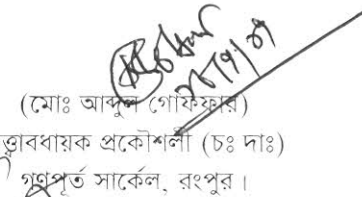 (মোঃ আব্দুল গোফফার)
ত্ত্বাবধায়ক প্রকৌশলী (চঃ দাঃ)
গণপূর্ত সার্কেল, রংপুর।